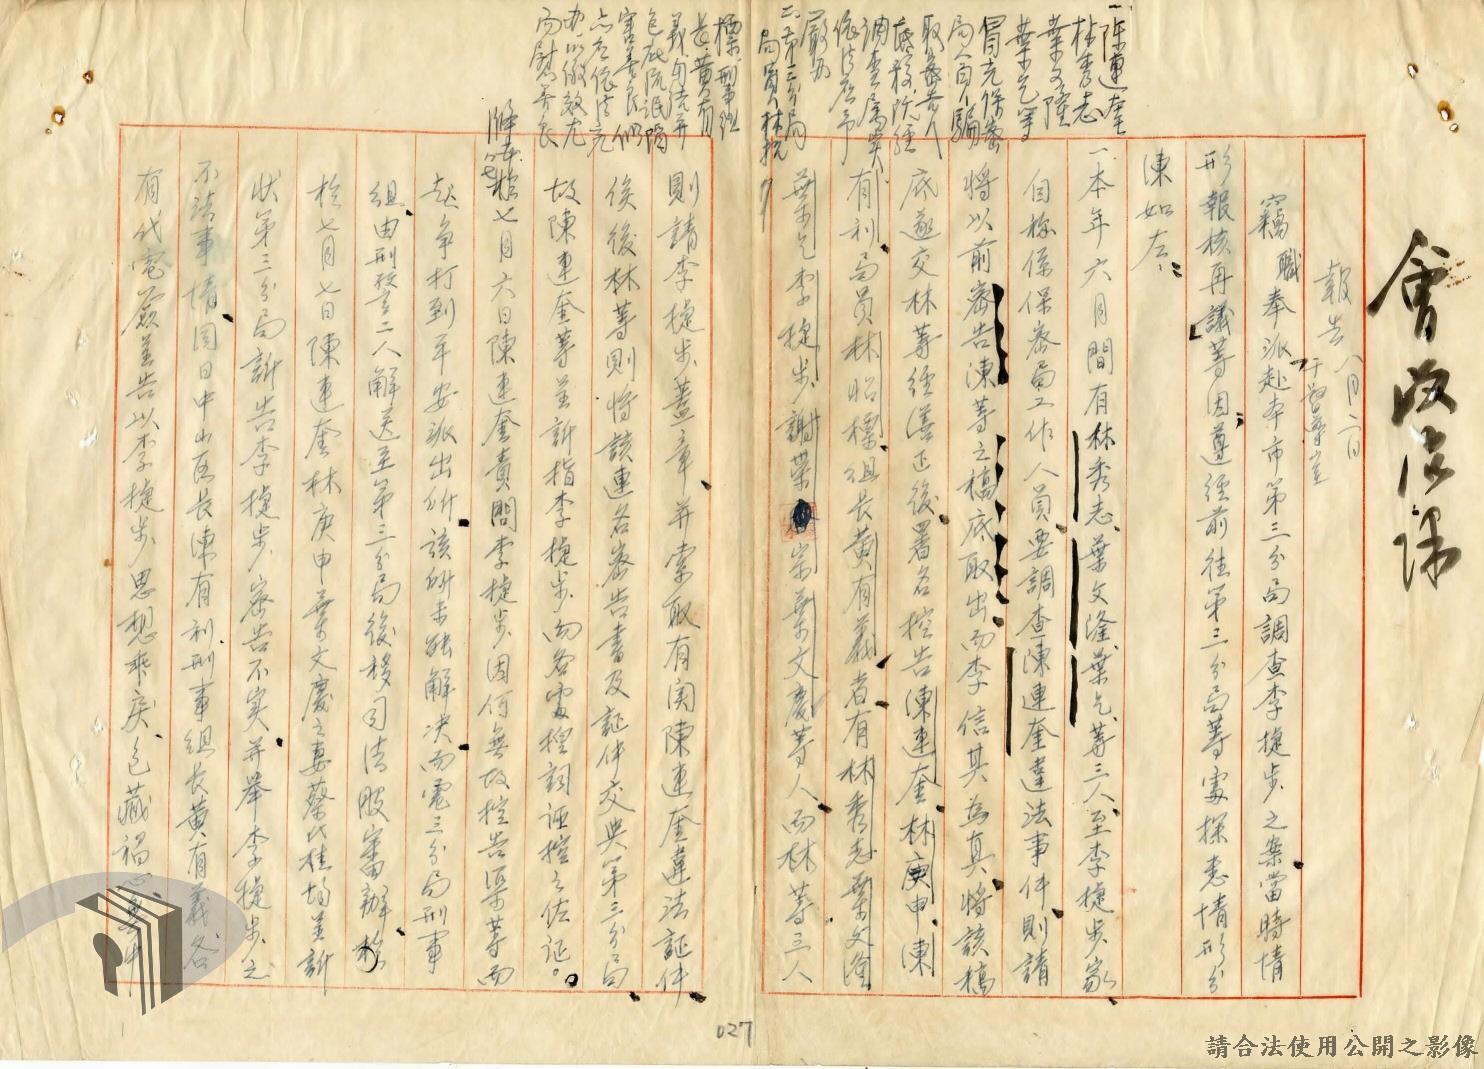 會政治課
報告 八月二日
于
竊職奉派赴本市第三分局調查李捷步之案當時情
形報核再議等因遵經前往第三分局等處探悉情形分
陳如左:
一、本年六月間有林秀志、葉文隆、葉乞等三人至李捷步家
自称係保密局工作人員要調查陳連奎違法事件則請
將以前密告陳等之稿底取出而李信其為真將該稿
底遂交林等經繕正後署名控告陳連奎、林庚申、陳
有利、局員林昭標、組長黃有義者有林秀志葉文隆
葉乞李捷步、謝葉宗葉文慶等人、而林等三人
則請李捷步蓋章、并索取有関陳連奎違法証件
俟後林等則將該連名密告書及証件交與第三分局
故陳連奎等並訴指李捷步向各處捏詞誣控之佐証。
七月六日陳連奎責問李捷步因何無故控告渠等而
起争打到平安派出所、該所未能解决、而電三分局刑事
組、由刑警二人解送至第三分局後移司法股審辦、
於七月七日陳連奎林庚申葉文慶之妻蔡代桂均並訴
狀第三分局訴告李捷步、密告不实、并舉李捷步之
不法事情、同日中山區長陳有利、刑事組長黃有義各
有代電蔽並告以李捷步思想乖戾、包藏禍心
一、陳連奎
林秀志
葉文隆
葉乞等
冒充保密
局人員騙
取密告人
調查屬实
依法應予
嚴办
二、第三分局
局員林招
標、刑事組
長黃有
義勾結并
包庇流氓陷
害善良們
亦应依法究
办以儆效尤
而慰善良
027
請合法使用公開之影像